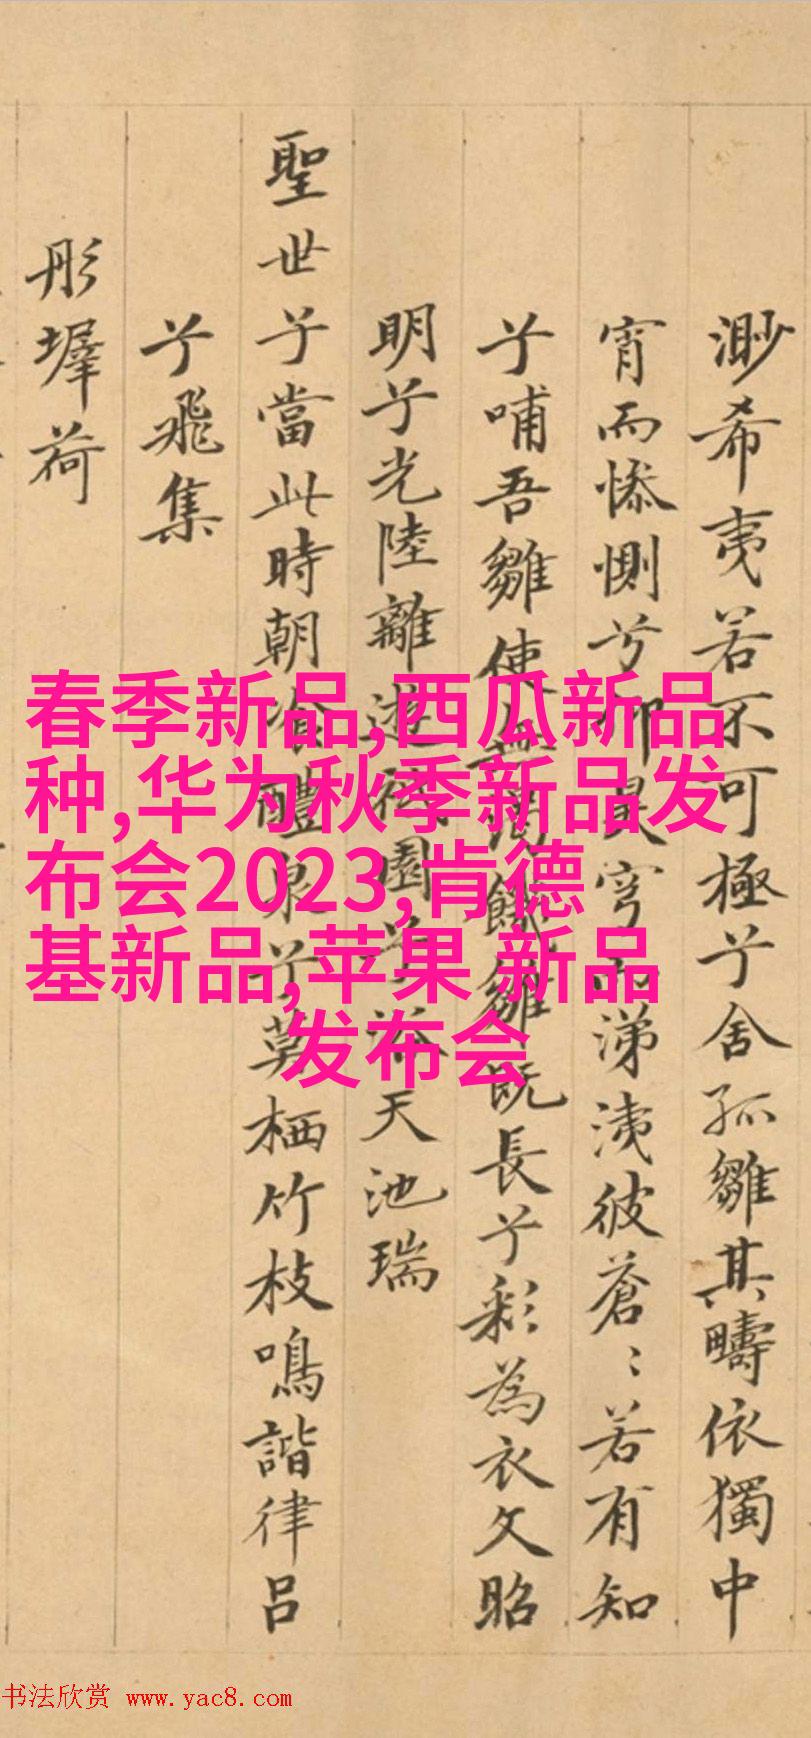 渺希夷若不可極兮舍孤雛其疇依獨中
宵而惨惻兮仰昊穹而涕洟彼蒼〻若有知
兮哺吾雛使無饑雛既長兮彩為衣文昭
明兮光陸離遊園兮浴天池瑞
聖世兮當此時朝飡醴泉兮莫栖竹枝鳴諧律吕
兮飛集
彤墀荷
春季新品,西瓜新品
种,华为秋季新品发
布会2023,肯德
基新品,苹果 新品
发布会
书法欣赏 www.yac8.com